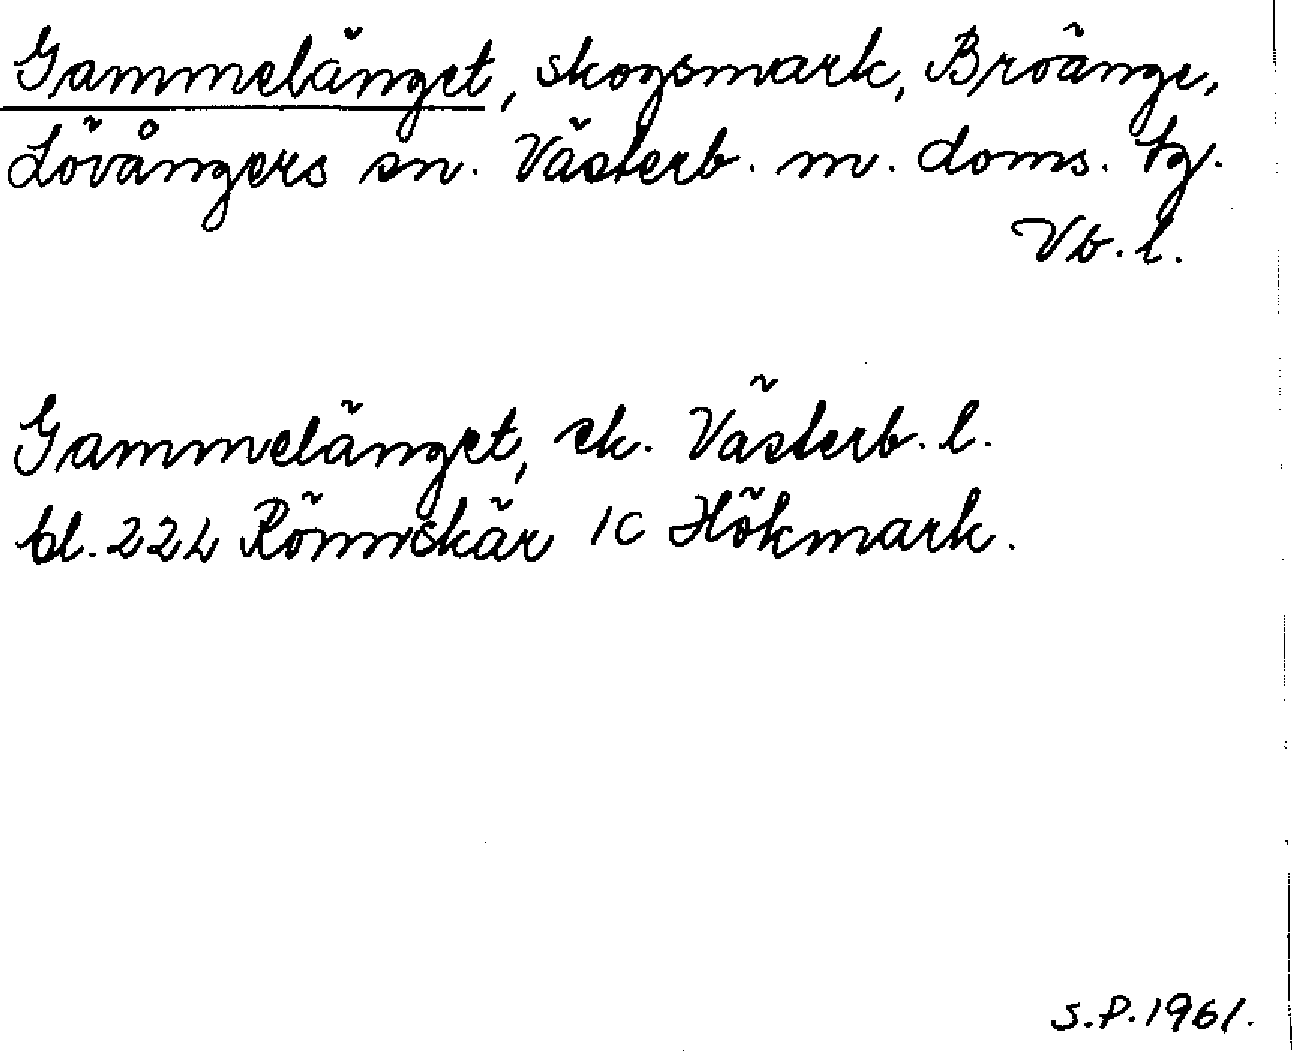 Gammelänget, skogsmark, Broänge,
Lövångers sn. Västerb. m. doms. tg.
Vb. l.
Gammelänget, ek. Västerb. l.
bl. 22L Rönnskär 1C Hökmark.
S.P. 1961.